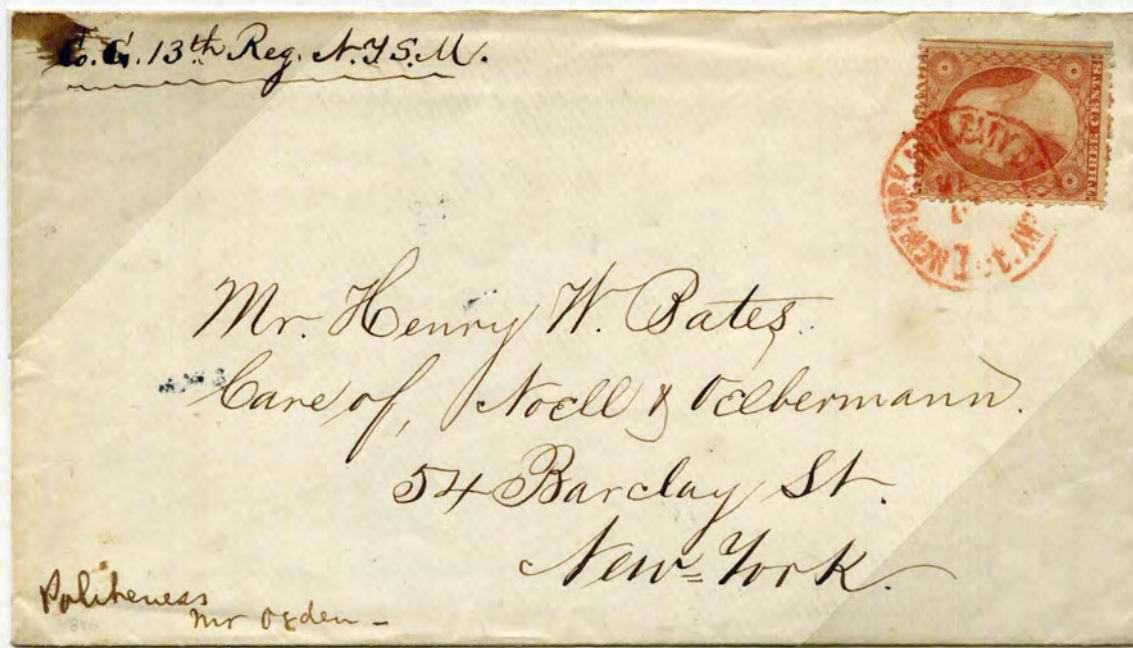 Co. G. 13th Reg. N.Y.S.M.
THREE CENTS
NEW-YORK
Mr. Henry W. Bates.
Care of, Noell & Oelbermann.
54 Barclay St.
New=York.
Politeness
Mr Ogden -